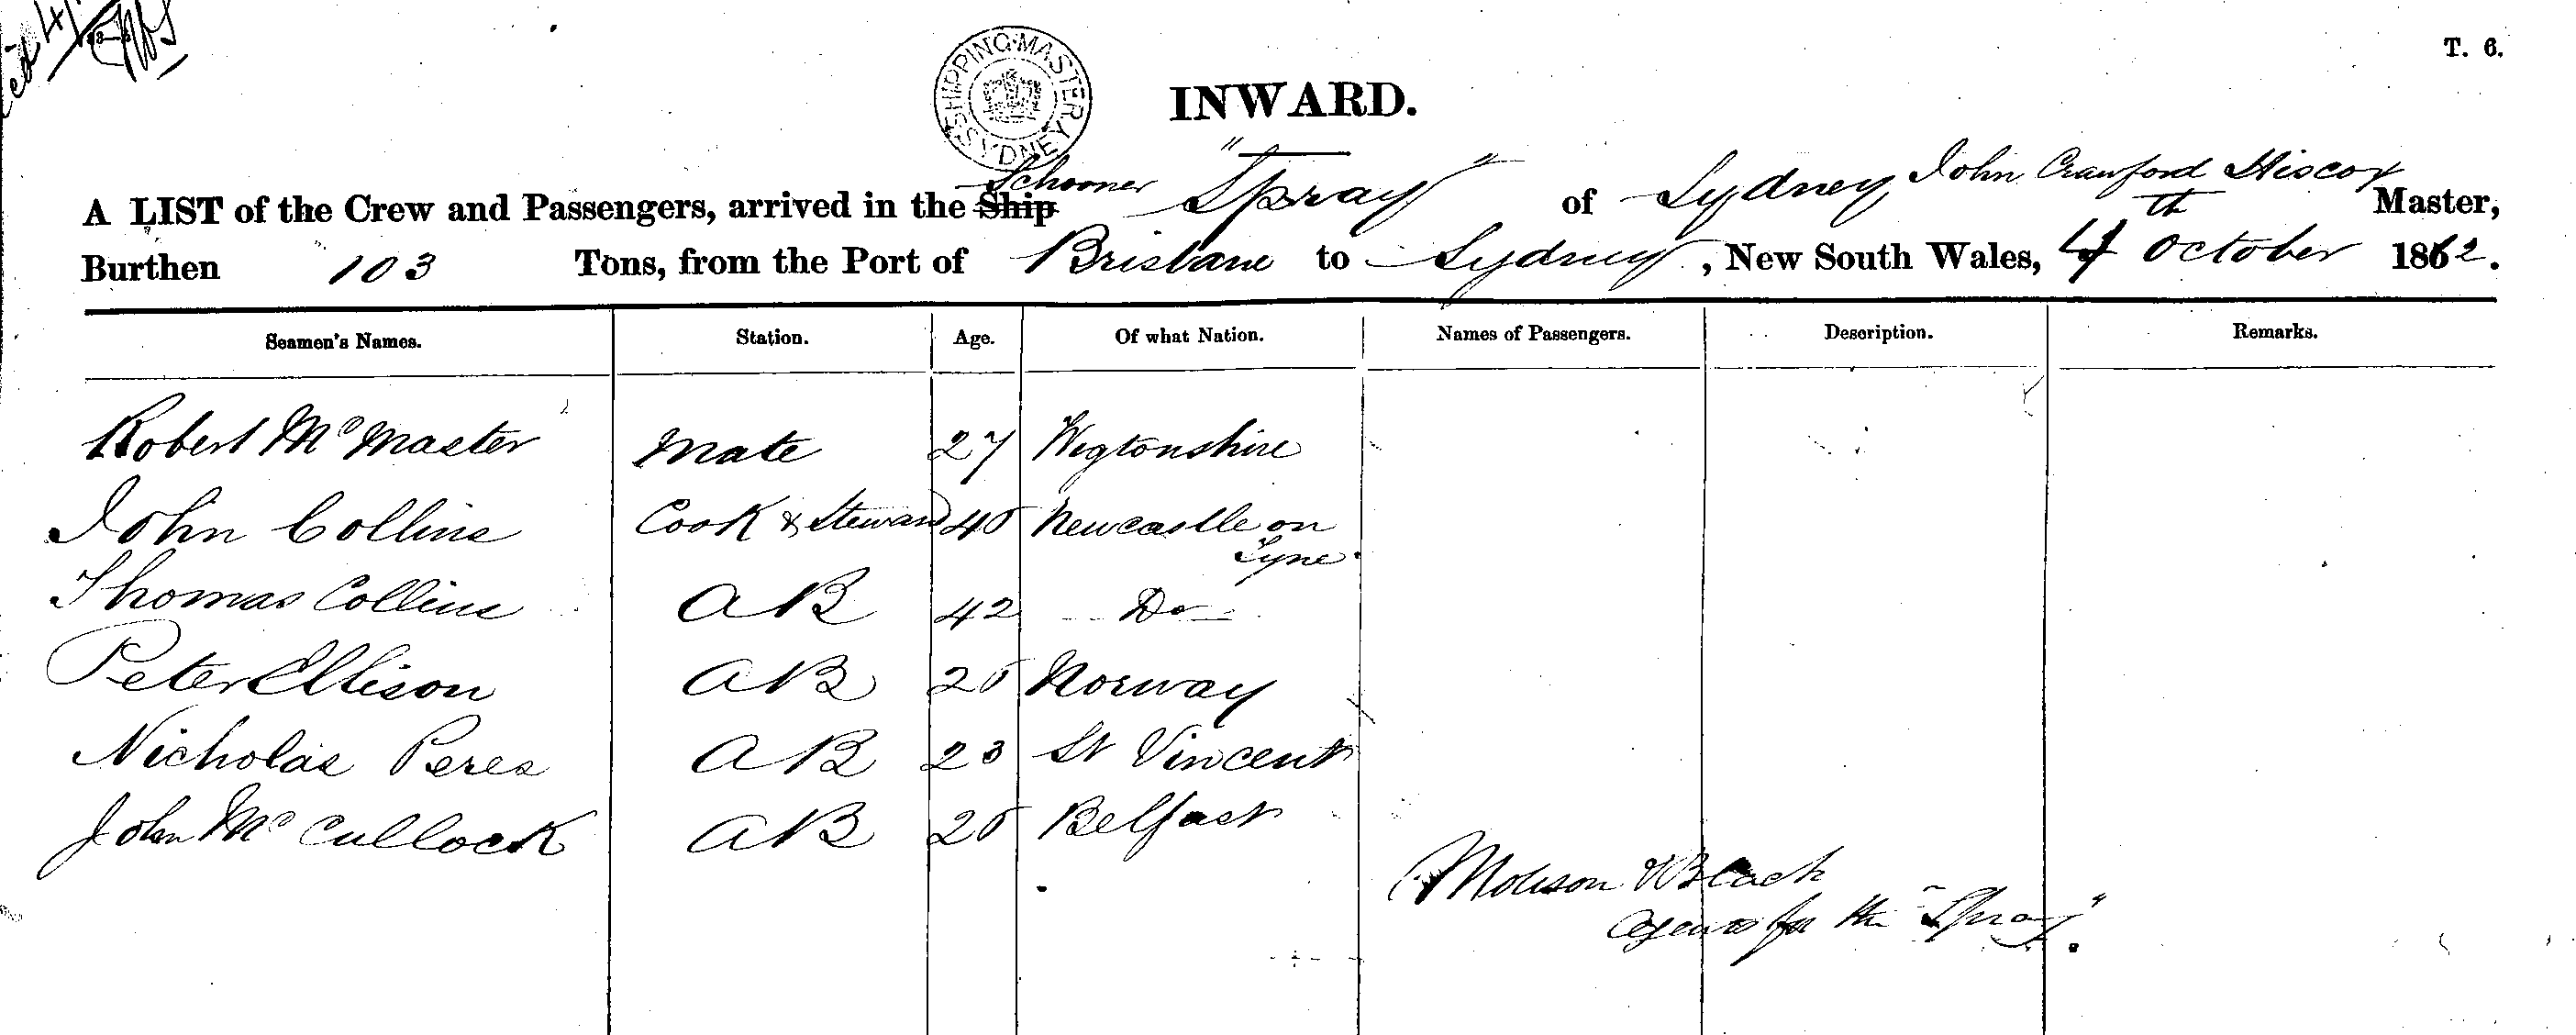 T. 6.
SHIPPING MASTER SYDNEY
INWARD.
A LIST of the Crew and Passengers, arrived in the Ship Schooner "Spray" of Sydney, John Crawford Hiscox Master,
Burthen 103 Tons, from the Port of Brisbane to Sydney, New South Wales, 4th October 1862.
Seamen's Names. Station. Age. Of what Nation. Names of Passengers. Description. Remarks.
Robert McMaster Mate 27 Wigtonshire
John Collins Cook & Steward 40 Newcastle on
Tyne
Thomas Collins AB 42 Do
Peter Ellison AB Norway
Nicholas Peres AB 23 St Vincent
John McCullock AB Belfast
& Black
Agents for the "Spray".